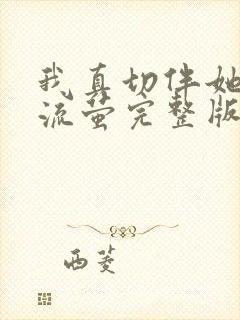 我真切伴她
流萤完整版
西菱